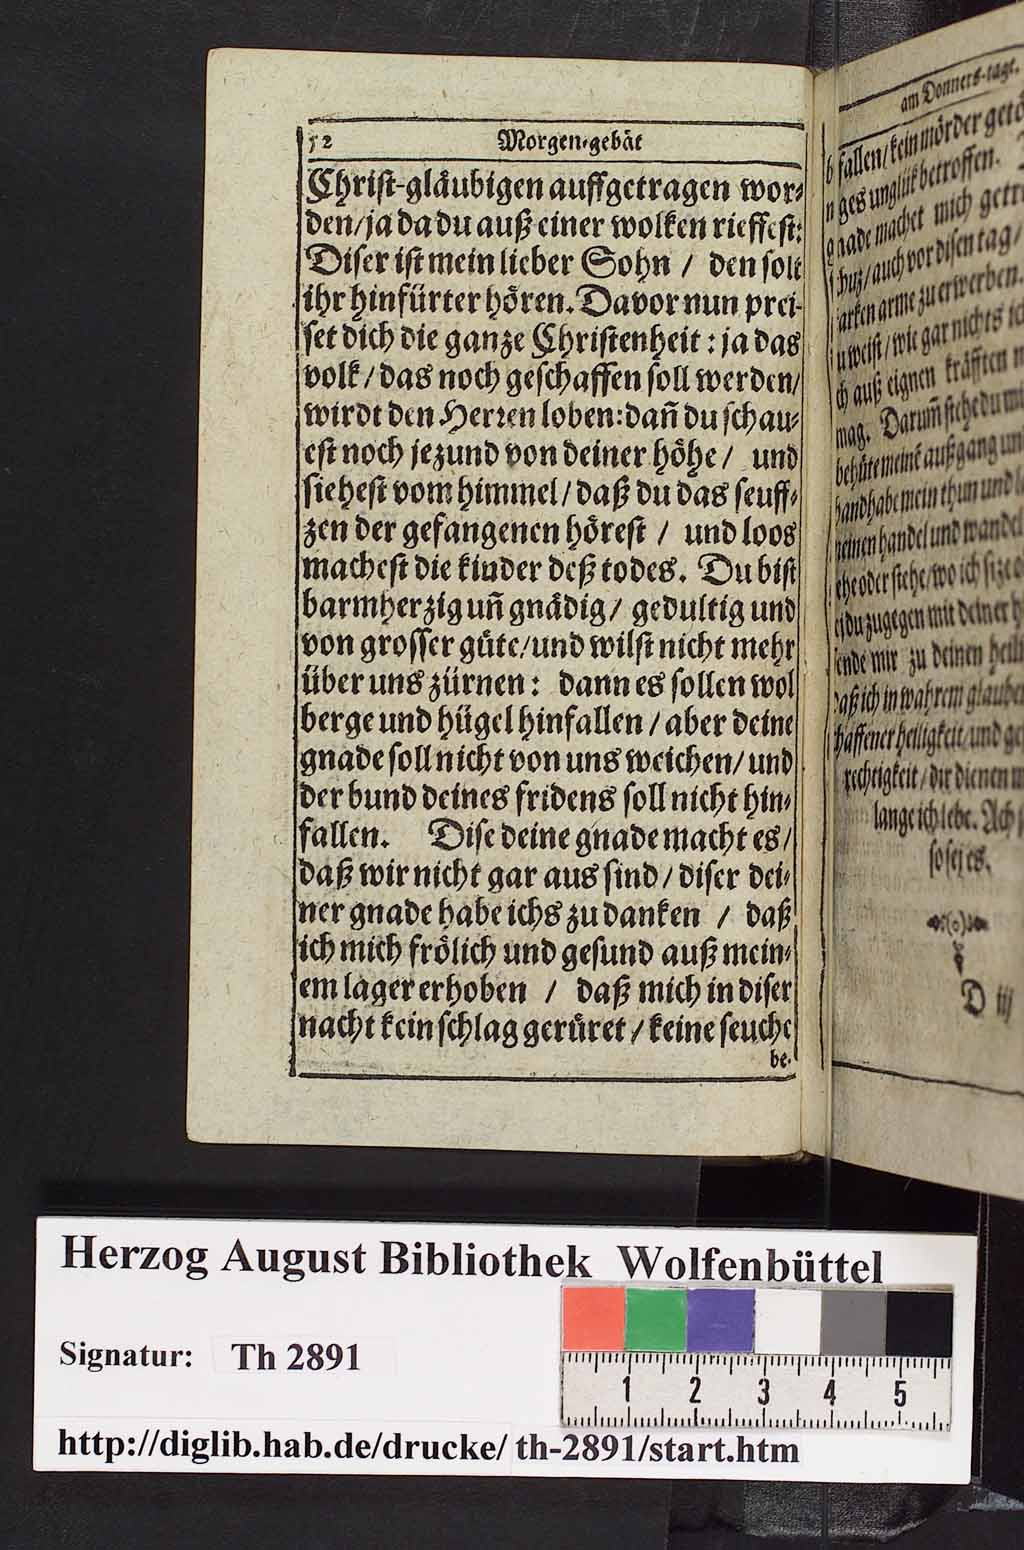 52 Morgen-gebät
Christ-gläubigen auffgetragen wor-
den/ ja da du auß einer wolken rieffest:
Diser ist mein lieber Sohn / den solt
ihr hinfürter hören. Davor nun prei-
set dich die ganze Christenheit: ja das
volk / das noch geschaffen soll werden/
wirdt den Herren loben: dañ du schau-
est noch jezund von deiner höhe / und
siehest vom himmel / daß du das seuff-
zen der gefangenen hörest / und loos
machest die kinder deß todes. Du bist
barmherzig uñ gnädig / gedultig und
von grosser güte / und wilst nicht mehr
über uns zürnen: dann es sollen wol
berge und hügel hinfallen / aber deine
gnade soll nicht von uns weichen / und
der bund deines fridens soll nicht hin-
fallen. Dise deine gnade macht es /
daß wir nicht gar aus sind / diser dei-
ner gnade habe ichs zu danken / daß
ich mich frölich und gesund auß mein-
em lager erhoben / daß mich in diser
nacht kein schlag gerüret / keine seuche
be-
am Donners-tage.
fallen / kein mörder
ges unglük betroffen.
machet mich
auch vor disen tag /
arme zu erwerben.
weist / wie gar nichts
auß eignen kräfften
mag. Darum̃ stehe du
behüte meinẽ außgang
handhabe mein thun und
handel und wandel
oder stehe / wo ich
du zugegen mit deiner
mir zu deinen
ich in wahrem
heiligkeit / und
rechtigkeit / dir dienen
lange ich lebe. Ach
so sej es.
D iij
Herzog August Bibliothek Wolfenbüttel
Signatur: Th 2891
1 2 3 4 5
http://diglib.hab.de/drucke/ th-2891/start.htm